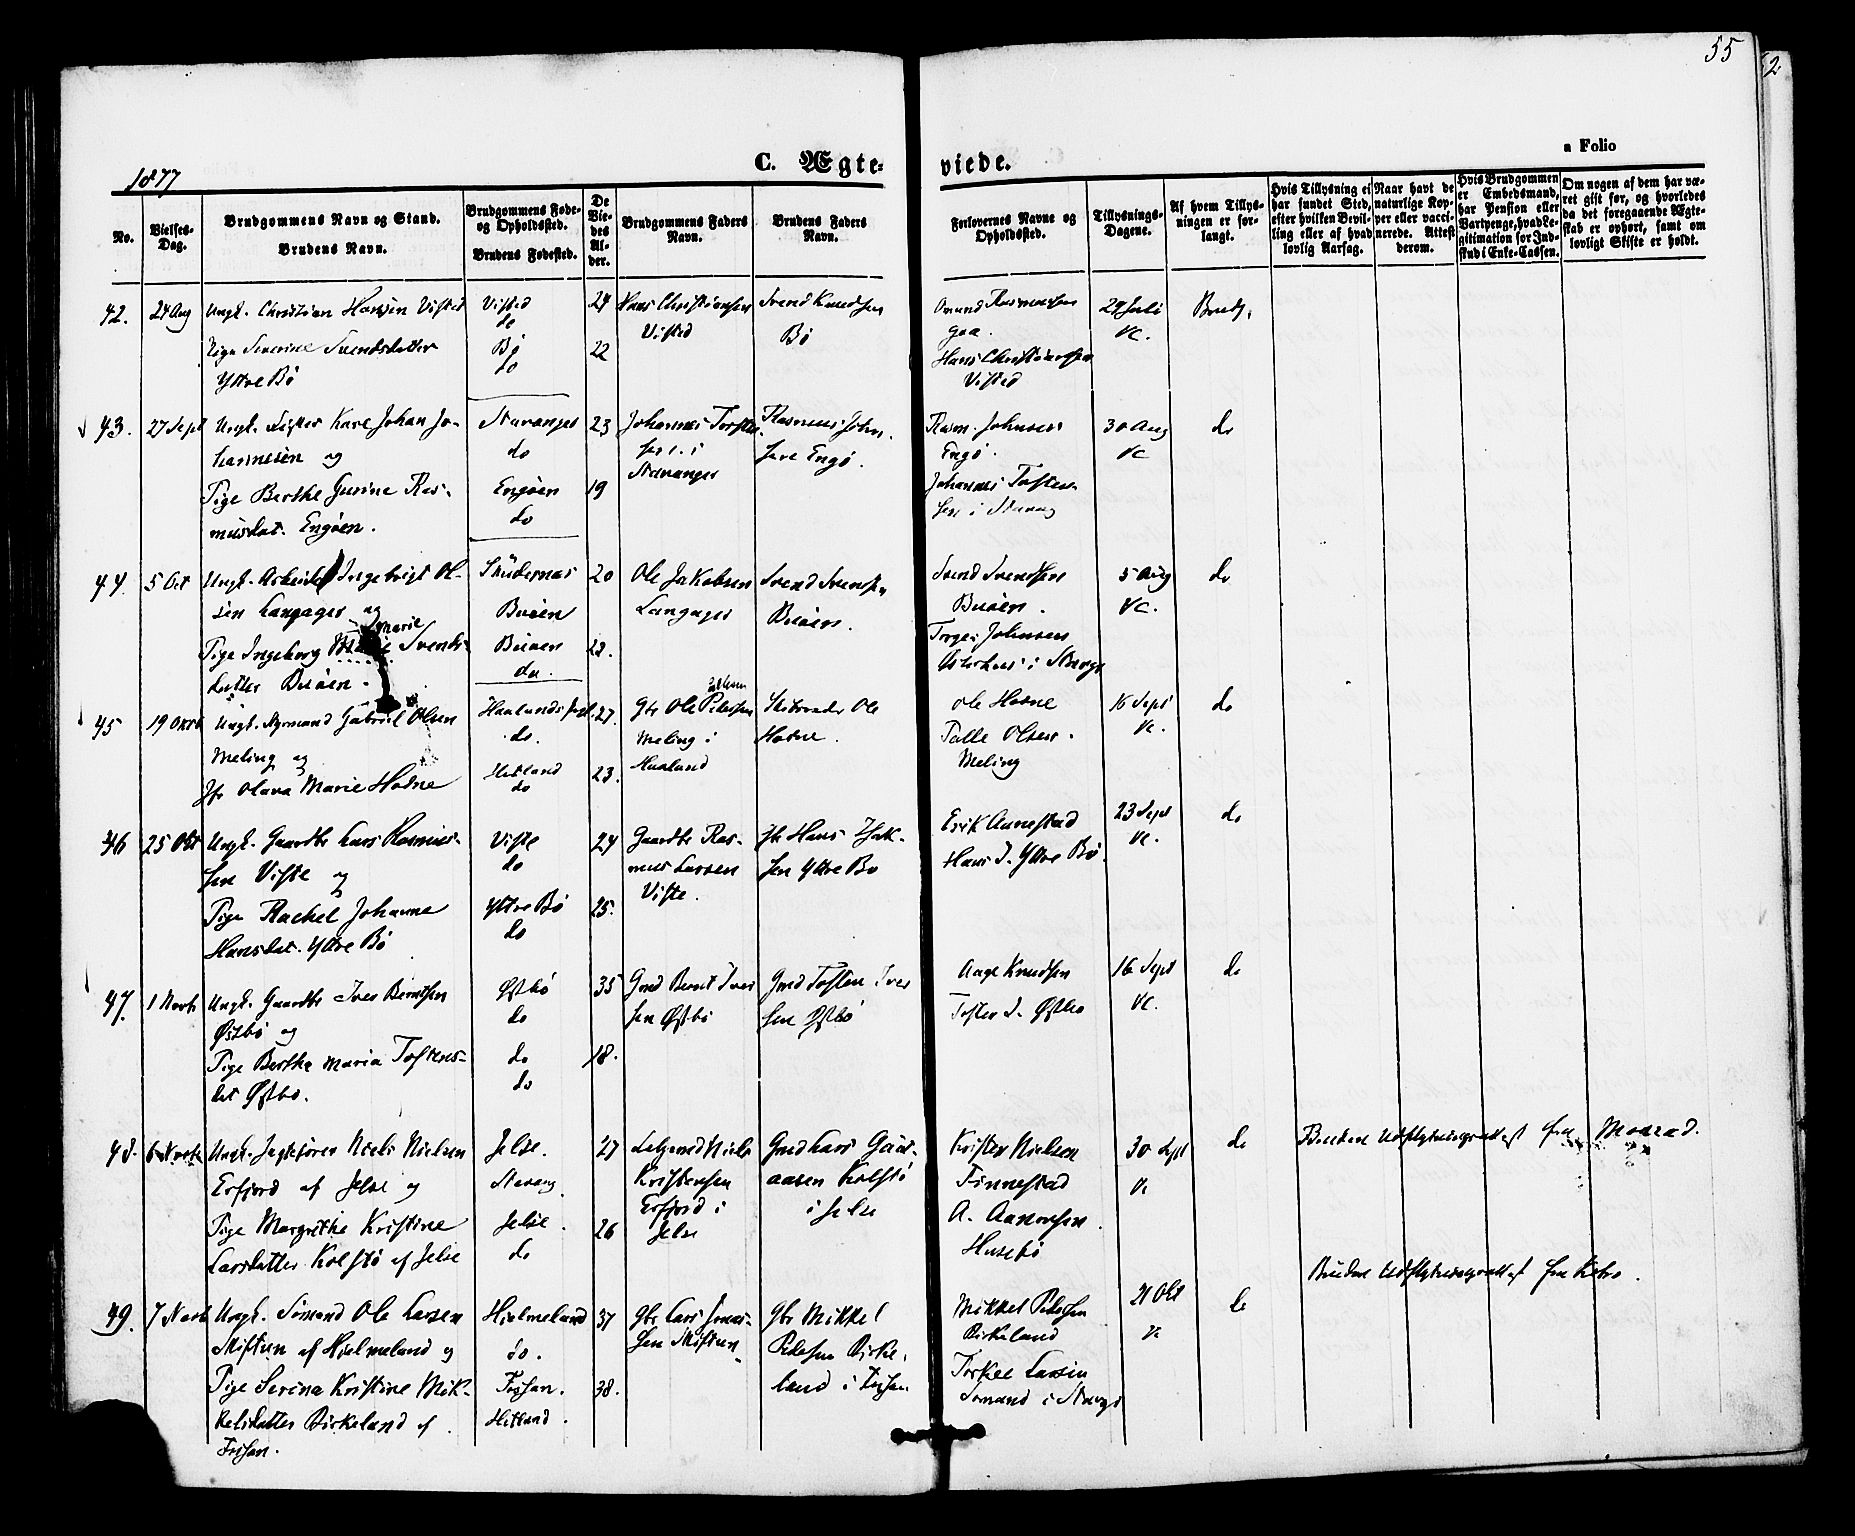 55
2
1877
C. Ægte-
viede.
a Folio
No.
Vielses-
Dag.
Brudgommens Navn og Stand.
Brudens Navn.
Brudgommens Føde-
og Opholdssted.
Brudens Fødested.
De
Vie-
des
Al-
der.
Brudgommens Faders
Navn.
Brudens Faders
Navn.
Forlovernes Navne og
Opholdssted.
Tillysnings-
Dagene.
Af hvem Tillys-
ningen er for-
langt.
Hvis Tillysning ei
har fundet Sted,
efter hvilken Bevil-
ling eller af hvad
lovlig Aarsag.
Naar havt de
naturlige Kop-
per eller vacci-
nerede. Attest
derom.
Hvis Brudgommen
er Embedsmand,
har Pension eller
Vartpenge, hvad Le-
gitimation for Ind-
skud i Enke-Cassen.
Om nogen af dem har væ-
ret gift før, og hvorledes
da det foregaaende Ægte-
skab er ophørt, samt om
lovligt Skifte er holdt.
42.
24 Aug
Ungk. Christian Hansen Visted
Pige Severine Svendsdatter
Ytre Bø
Visted
do
Bø
do
24
22
Hans Christiansen
Visted
Svend Knudsen
Bø
Omund Rasmussen
Goa.
Hans Christiansen
Visted
29 Juli
Brudg.
43.
27 Sept
Ungk. Karl Johan Jo-
hannesen og
Pige Berthe Gurine Ras-
musdat. Engøen.
Stavanger
do
Engøen
do
23
19
Johannes Torsten-
sen i
Stavanger
Rasmus John-
sen Engø.
Rasm. Johnsen
Engø.
Johannes Torsten-
sen i Stavang
30 Aug
do
44.
5 Oct
Ungk. Arbeider Ingebrigt Ol-
sen Langager og
Pige Ingeborg Marie Svends-
datter Buøen.
Skudernæs
Buøen
Buøen
do.
20
22.
Ole Jakobsen
Langager
Svend Svensen
Buøen.
Svend Svendsen
Buøen.
Torger Johnsen
i Stavgr
5 Aug
do
45
19 Oktb
Ungk. Styrmand Gabriel Olsen
Meling og
Jfr Olava Marie Hodne
do.
Hetland
do
27.
23.
Gbr Ole Pedersen
Meling i
Haaland
Skibsreder Ole
Hodne.
Ole Hodne
Talle Olsen
Meling
16 Sept
do
46
25 Okt
Ungk. Gaardbr Lars Rasmus-
sen Viste og
Pige Rachel Johanne
Hansdat. Ytre Bø
Viste
do
Ytre Bø
do
24
25.
Gaardbr Ras-
mus Larsen
Viste.
Gbr Hans Isak-
sen Ytre Bø
Erik Aanestad
Hans I. Ytre Bø.
23 Sept
do
47.
1 Novb
Ungk. Gaardbr Iver Berntsen
Østbø og
Pige Berthe Maria Tostens-
dat Østbø.
Østbø
do
do
do
35
18.
Gmd Bernt Iver
sen Østbø
Gmd Tosten Iver
sen Østbø
Aage Knudsen
Tosten I. Østbø
16 Sept
do
48.
6 Novb
Ungk. Jægtfører Niels Nielsen
Erfjord af Jelse og
Pige Margrethe Kristine
Larsdatter Kolstø af Jelse
Jelse.
Stavang
Jelse.
do
27
26
Niels
Kristensen
Erfjord i
Jelse
Gmd Lars
Kolstø
i Jelse
Krister Nielsen
Finnestad
A. Aanensen
Husebø
30 Sept
do
Bruden Udflytningsattest fra
49.
7 Novb
Ungk. Sømand Ole Larsen
Mistun af Hjelmeland og
Pige Serina Kristine Mik-
kelsdatter Birkeland af
Hjelmeland
do.
Hetland.
37
38.
Gbr Lars Jonas-
sen Mistun
Gbr Mikkel
Pedersen Birke-
land i
Mikkel Pedersen
Birkeland
Torkel Larsen
Sømand i Stavgr
21 Okt
do
Bruden Udflytningsattest fra